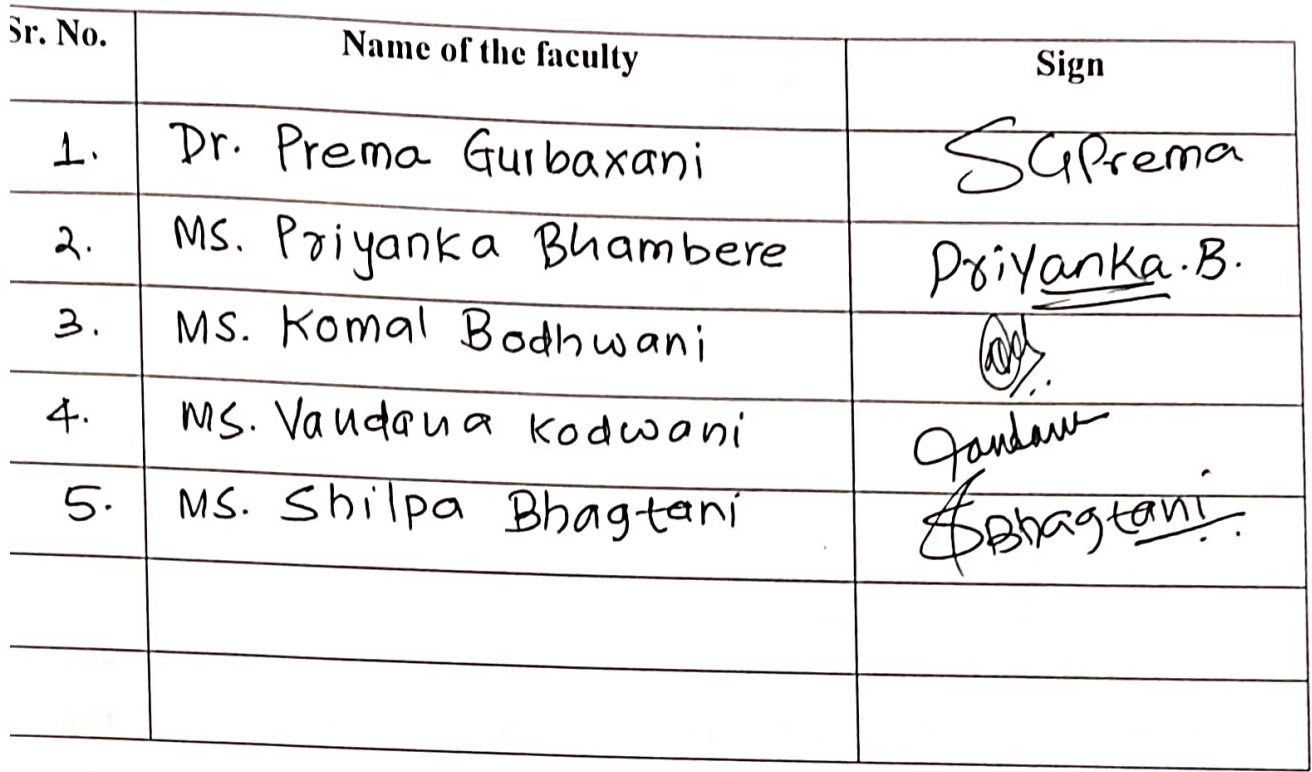 Sr. No. Name of the faculty Sign
1. Dr. Prema Gurbaxani SGPrema
2. MS. Priyanka Bhambere Priyanka.B.
3. MS. Komal Bodhwani
4. MS. Vandana Kodwani
5. MS. Shilpa Bhagtani SBhagtani